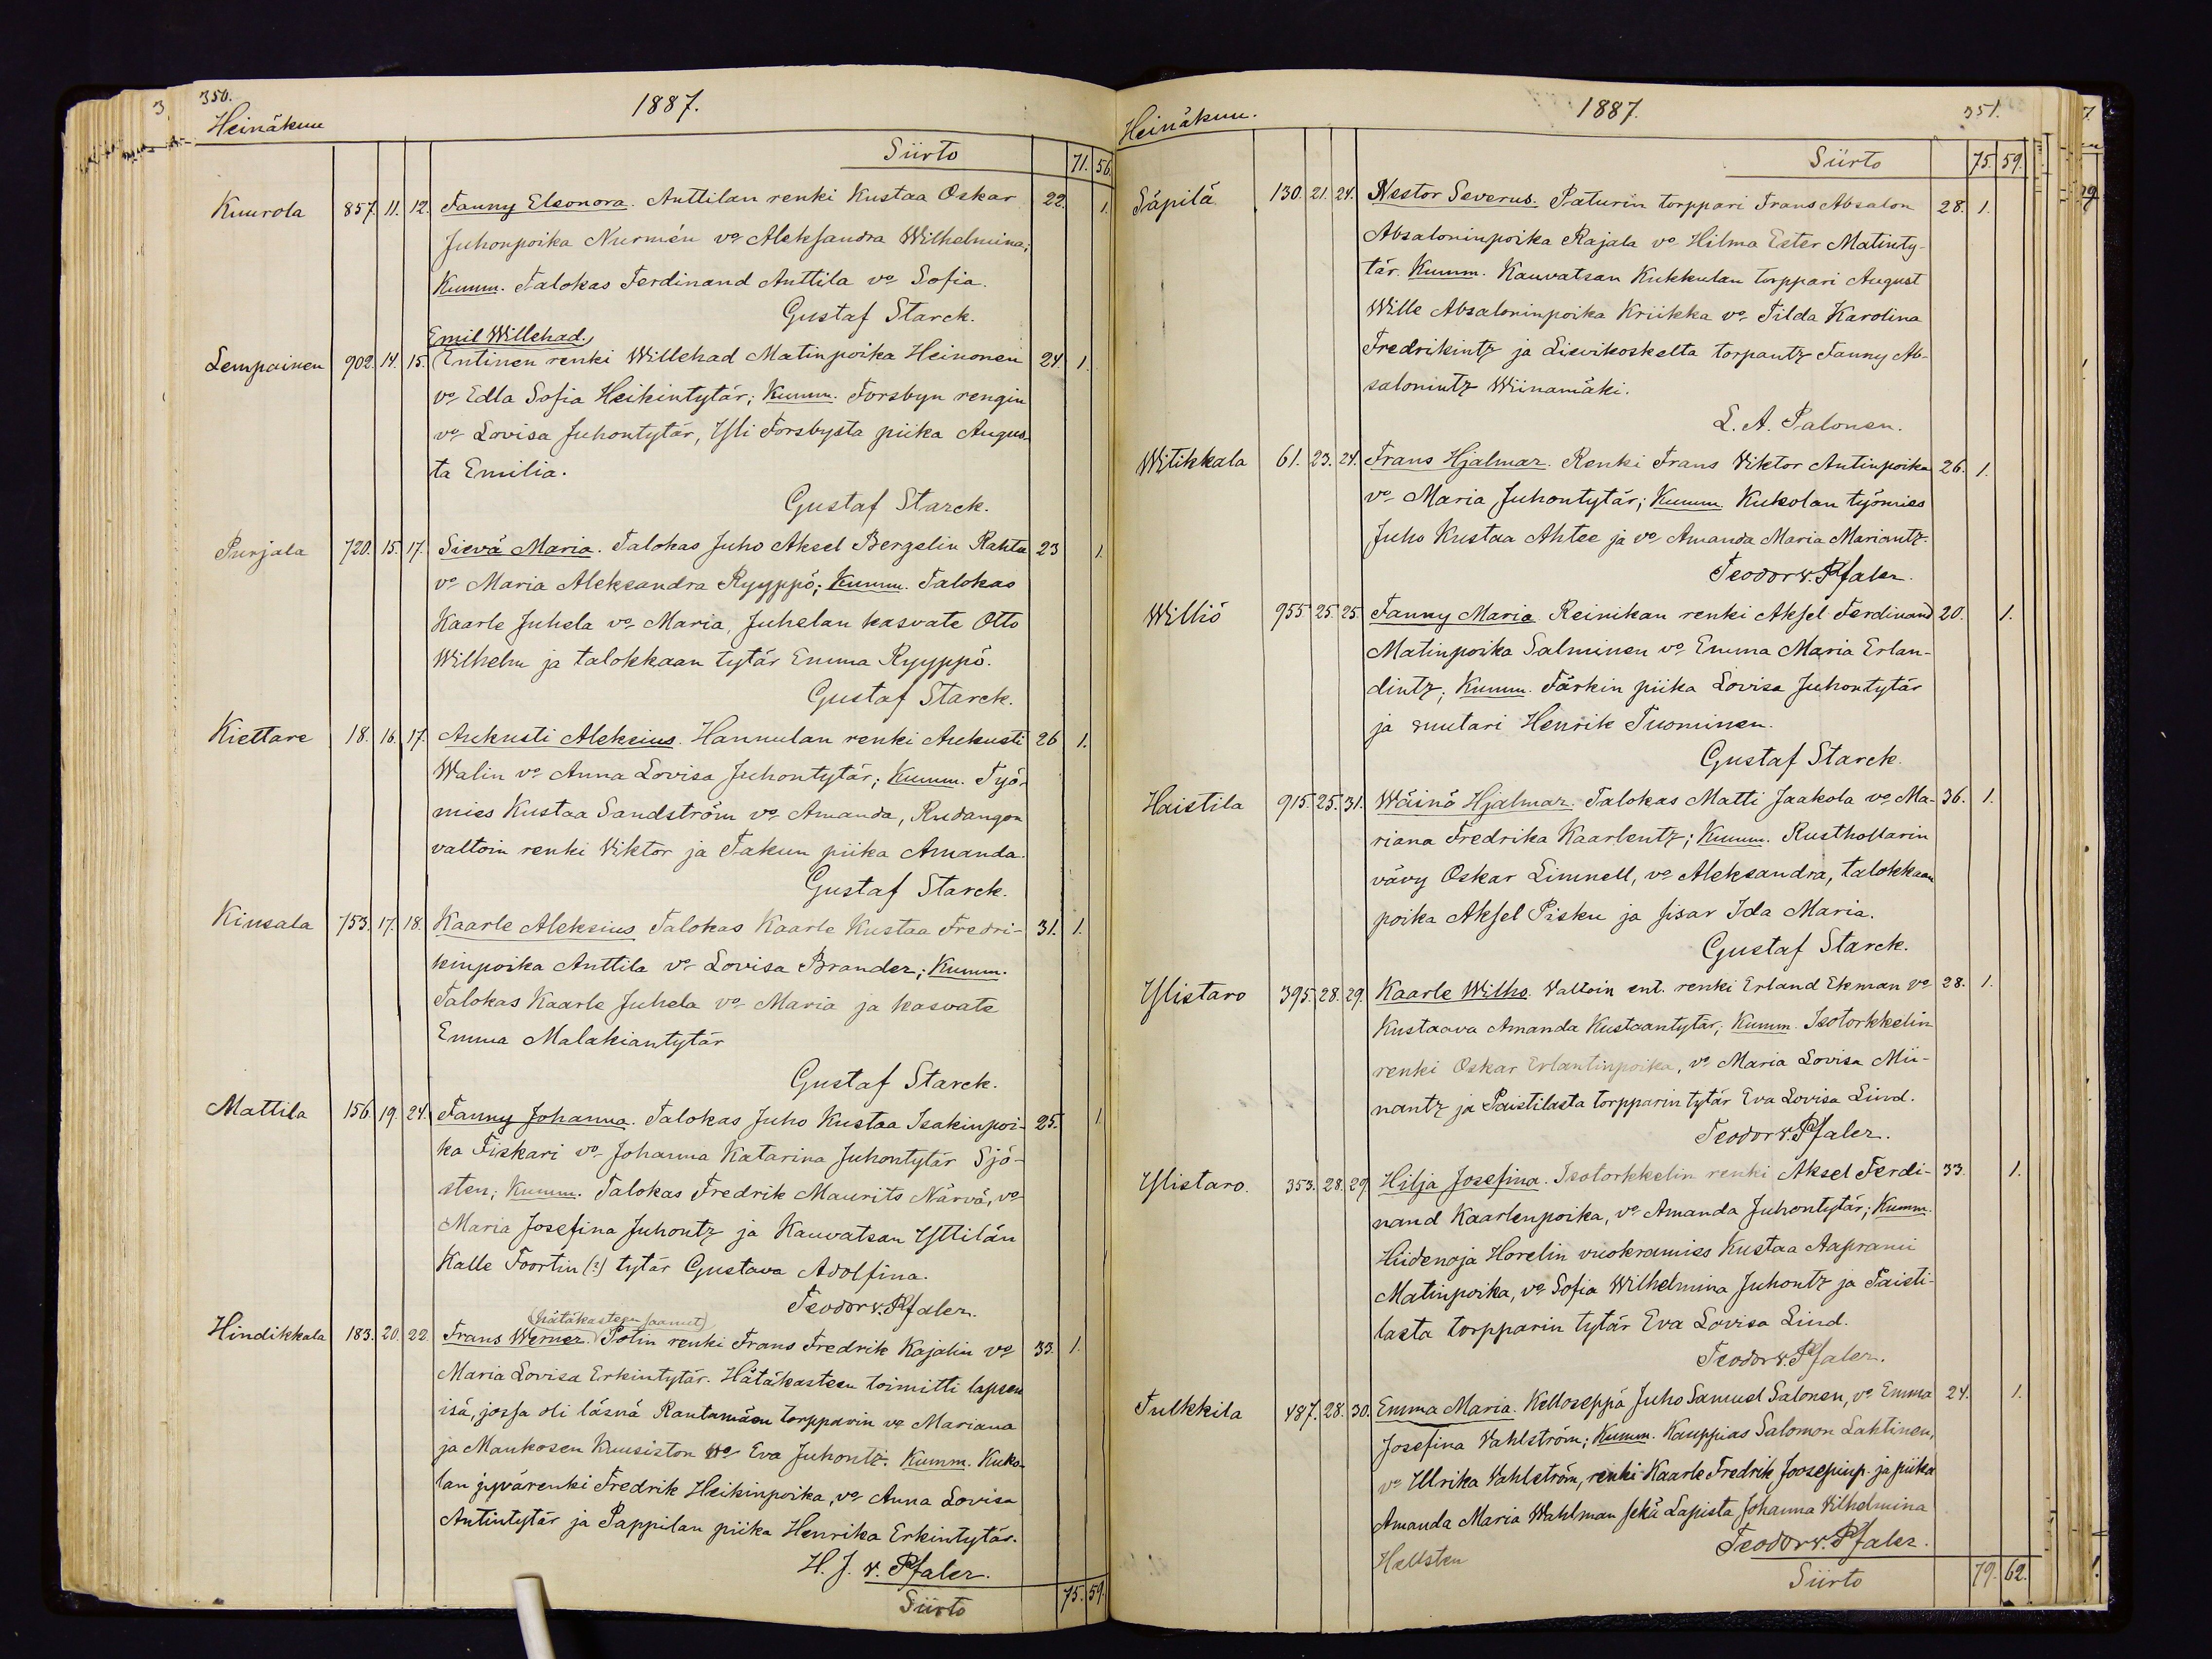 350.
1887.
Heinäkuu
Siirto 71. 56.
Kuurola 857. 11. 12. Fanny Eleonora. Anttilan renki Kustaa Oskar 22. 1.
Juhonpoika Nurmén vo Aleksandra Wilhelmina;
Kumm. Talokas Ferdinand Anttila vo Sofia.
Gustaf Starck.
Emil Willehad.
Lempainen 902. 14. 15. Entinen renki Willehad Matinpoika Heinonen 24. 1.
vo Edla Sofia Heikintytär; Kumm. Forsbyn rengin
vo Lovisa Juhontytär, Yli Forsbysta piika Augus-
ta Emilia.
Gustaf Starck.
Purjala 720. 15. 17. Sievä Maria. Talokas Juho Aksel Bergelin Rahta 23 1.
vo Maria Aleksandra Ryyppö; Kumm. Talokas
Kaarle Juhela vo Maria, Juhelan kasvate Otto
Wilhelm ja talokkaan tytär Emma Ryyppö.
Gustaf Starck.
Kiettare 18. 16. 17. Aukusti Aleksius. Hannulan renki Aukusti 26 1.
Walin vo Anna Lovisa Juhontytär; Kumm. Työ-
mies Kustaa Sandström vo Amanda, Rudangon
valtoin renki Viktor ja Takun piika Amanda.
Gustaf Starck.
Kiusala 753. 17. 18. Kaarle Aleksius Talokas Kaarle Kustaa Fredri- 31. 1.
kinpoika Anttila vo Lovisa Brander; Kumm.
Talokas Kaarle Juhela vo Maria ja kasvate
Emma Malakiantytär
Gustaf Starck.
Mattila 156. 19. 24. Fanny Johanna. Talokas Juho Kustaa Isakinpoi- 25. 1
ka Fiskari vo Johanna Katarina Juhontytär Sjö-
sten; Kumm. Talokas Fredrik Maurits Närvä, vo
Maria Josefina Juhontr ja Kauvatsan Yttilän
Kalle Foortin (?) tytär Gustava Adolfina.
Teodor v. Pfaler.
(hätäkasteen saanut)
Hindikkala 183. 20. 22. Frans Werner. Potin renki Frans Fredrik Kajalin vo 33. 1.
Maria Lovisa Erkintytär. Hätäkasteen toimitti lapsen
isä, jossa oli läsnä Rantamäen torpparin vo Mariana
ja Maukosen Kuusiston vo Eva Juhontr. Kumm. Kuko-
lan jyvärenki Fredrik Heikinpoika, vo Anna Lovisa
Antintytär ja Pappilan piika Henrika Erkintytär.
H. J. v. Pfaler.
Siirto 75. 59.
351.
1887.
Heinäkuu.
Siirto 75. 59.
Säpilä 130. 21. 24. Nestor Severus. Paturin torppari Frans Absalon 28. 1.
Absaloninpoika Rajala vo Hilma Ester Matinty-
tär. Kumm. Kauvatsan Kukkulan torppari August
Wille Absaloninpoika Kriikka vo Tilda Karolina
Fredrikintr ja Lievikoskelta torpantr Fanny Ab-
salonintr Wiinamäki.
L. A. Palonen.
Witikkala 61. 23. 24. Frans Hjalmar. Renki Frans Viktor Antinpoika 26. 1.
vo Maria Juhontytär; Kumm. Kukolan työmies
Juho Kustaa Ahtee ja vo Amanda Maria Mariantr.
Teodor v. Pfaler.
Williö 955. 25. 25. Fanny Maria Reinikan renki Aksel Ferdinand 20. 1.
Matinpoika Salminen vo Emma Maria Erlan-
dintr; Kumm. Färkin piika Lovisa Juhontytär
ja suutari Henrik Tuominen.
Gustaf Starck
Haistila 915. 25. 31. Wäinö Hjalmar. Talokas Matti Jaakola vo Ma- 36. 1.
riana Fredrika Kaarlentr; Kumm. Rusthollarin
vävy Oskar Limnell, vo Aleksandra, talokkaan
poika Aksel Pisku ja sisar Ida Maria.
Gustaf Starck.
Ylistaro 395. 28. 29. Kaarle Wilho. Valtoin ent. renki Erland Ekman vo 28. 1.
Kustaava Amanda Kustaantytär; Kumm. Isotorkkelin
renki Oskar Erlantinpoika, vo Maria Lovisa Mii-
nantr ja Paistilasta torpparin tytär Eva Lovisa Lind.
Teodor v. Pfaler.
Ylistaro. 353. 28. 29 Hilja Josefina. Isotorkkelin renki Aksel Ferdi- 33. 1.
nand Kaarlenpoika, vo Amanda Juhontytär; Kumm.
Hiidenoja Horelin vuokramies Kustaa Aaprami
Matinpoika, vo Sofia Wilhelmina Juhontr ja Paisti-
lasta torpparin tytär Eva Lovisa Lind.
Teodor v. Pfaler.
Tulkkila 487. 28. 30. Emma Maria. Kelloseppä Juho Samuel Salonen, vo Emma 24. 1.
Josefina Vahlström; Kumm. Kauppias Salomon Lahtinen,
vo Ulrika Vahlström, renki Kaarle Fredrik Joosepinp. ja piika
Amanda Maria Wahlman sekä Lapista Johanna Vilhelmina
Hellsten
Teodor v. Pfaler.
Siirto 79. 62.